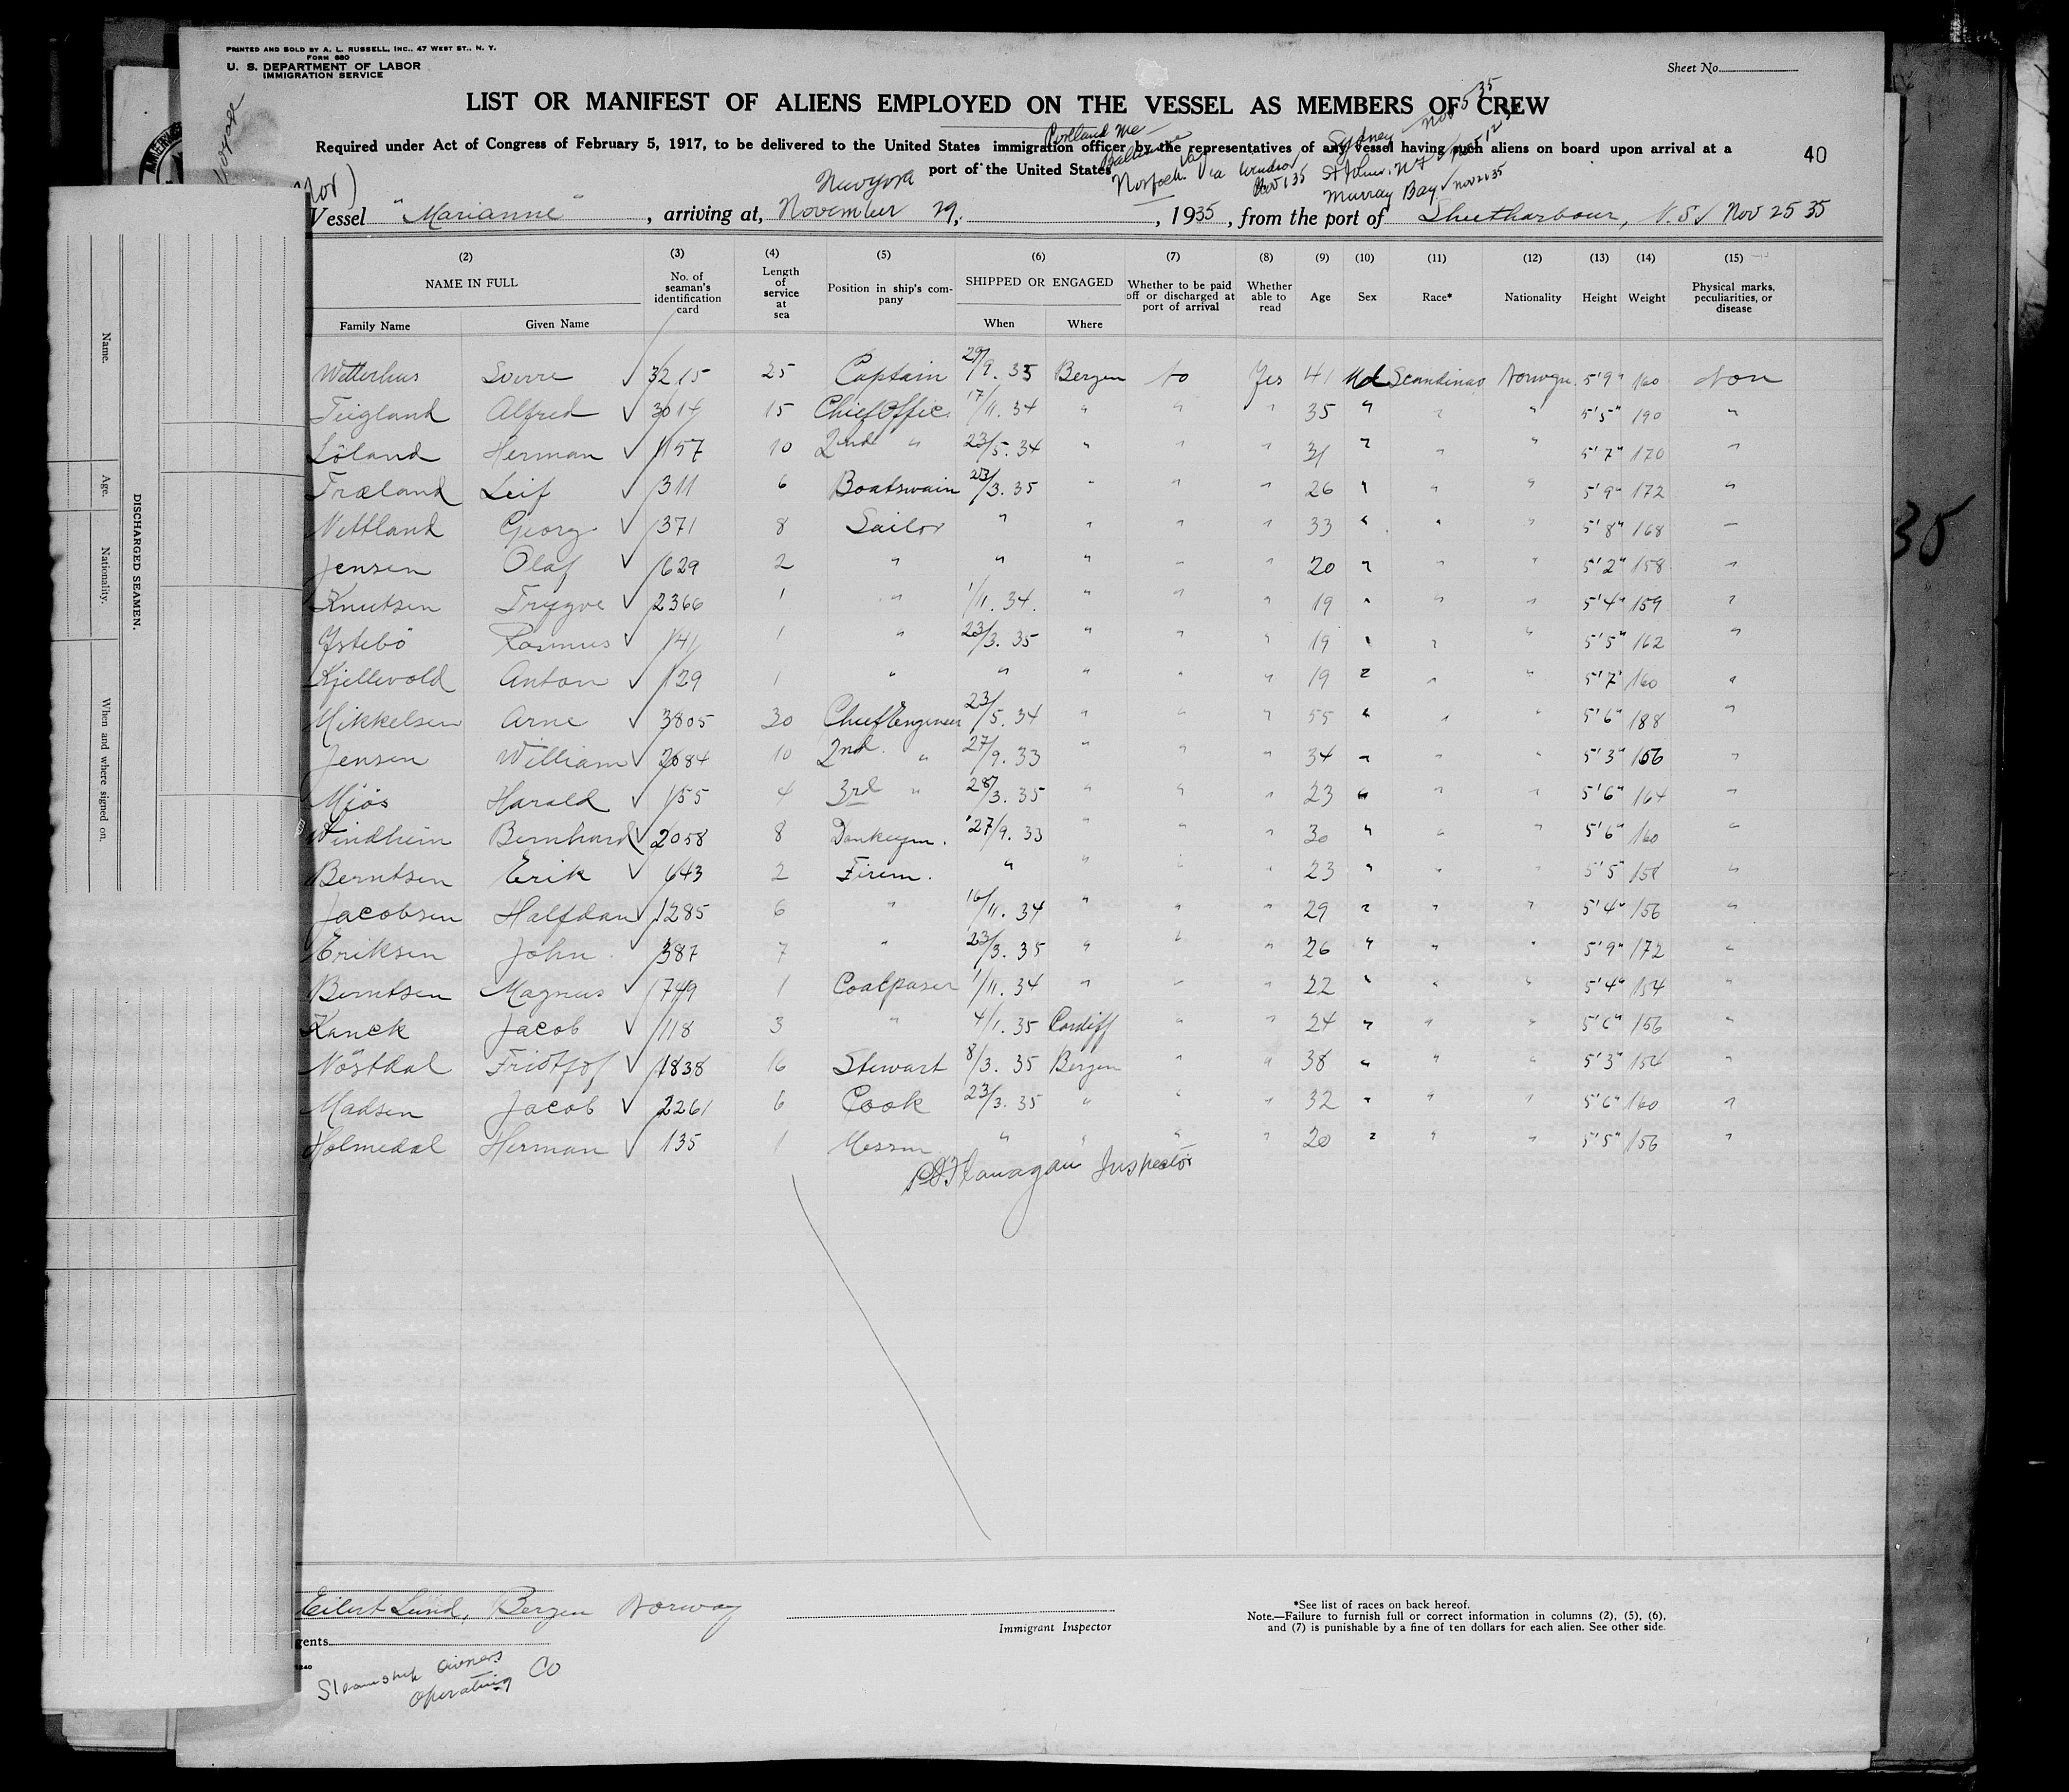 PRINTED AND SOLD BY A. L. RUSSELL, INC., 47 WEST ST., N. Y.
FORM 680
U. S. DEPARTMENT OF LABOR
IMMIGRATION SERVICE
Sheet No.
LIST OR MANIFEST OF ALIENS EMPLOYED ON THE VESSEL AS MEMBERS OF CREW
Nov 5 35
Portland Me Sydney Nov 12
Required under Act of Congress of February 5, 1917, to be delivered to the United States immigration officer by the representatives of any vessel having such aliens on board upon arrival at a
40
port of the United States
Baltimore
Norfolk Va Windsor Nov 1 35 St Johns, NF
New York Murray Bay Nov 21 35
Nor)
Vessel "Marianne", arriving at, November 29, 1935, from the port of Sheetharbour, N.S. Nov 25 35
(2) (3) (4) (5) (6) (7) (8) (9) (10) (11) (12) (13) (14) (15)
NAME IN FULL No. of seaman's identification card Length of service at sea Position in ship's company SHIPPED OR ENGAGED Whether to be paid off or discharged at port of arrival Whether able to read Age Sex Race* Nationality Height Weight Physical marks, peculiarities, or disease
Family Name Given Name When Where
Wetterhus Sverre ✓ 3215 25 Captain 29/9. 35 Bergen No Yes 41 Md Scandinav Norwegn. 5'9" 160 Non
Teigland Alfred ✓ 3014 15 Chief Offic. 17/11. 34 " " " 35 " " " 5'5" 190 "
Löland Herman ✓ 1157 10 2nd " 23/5. 34 " " " 31 " " " 5'7" 170 "
Træland Leif ✓ 311 6 Boatswain 23/3. 35 " " " 26 " " " 5'9" 172 "
Nettland Georg ✓ 371 8 Sailor " " " " 33 " " " 5'8" 168 "
Jensen Olaf ✓ 629 2 " " " " " 20 " " " 5'2" 158 "
Knutsen Trygve ✓ 2366 1 " 1/11. 34. " " " 19 " " " 5'4" 159 "
Ystebö Rasmus ✓ 141 1 " 23/3. 35 " " " 19 " " " 5'5" 162 "
Kjellevold Anton ✓ 129 1 " " " " " 19 " " " 5'7" 160 "
Mikkelsen Arne ✓ 3805 30 Chief Engineer 23/5. 34 " " " 55 " " " 5'6" 188 "
Jensen William ✓ 2684 10 2nd. " 27/9. 33 " " " 34 " " " 5'3" 166 "
Mjös Harald ✓ 155 4 3rd " 28/3. 35 " " " 23 " " " 5'6" 164 "
Windheim Bernhard ✓ 2058 8 Donkeym. 27/9. 33 " " " 30 " " " 5'6" 160 "
Berntsen Erik ✓ 643 2 Firem. " " " " 23 " " " 5'5" 158 "
Jacobsen Halfdan ✓ 1285 6 " 16/11. 34 " " " 29 " " " 5'4" 156 "
Eriksen John ✓ 387 7 " 23/3. 35 " " " 26 " " " 5'9" 172 "
Berntsen Magnus ✓ 749 1 Coalpaser 1/11. 34 " " " 22 " " " 5'4" 154 "
Kanck Jacob ✓ 118 3 " 4/1. 35 Cardiff " " 24 " " " 5'6" 156 "
Nöstdal Fridtjof ✓ 1838 16 Stewart 8/3. 35 Bergen " " 38 " " " 5'3" 154 "
Madsen Jacob ✓ 2261 6 Cook 23/3. 35 " " " 32 " " " 5'6" 160 "
Holmedal Herman ✓ 135 1 Messm " " " " 20 " " " 5'5" 156 "
Flanagan Inspector
Eilert Lund, Bergen Norway
Immigrant Inspector
gents
Steamship Owners
Operating Co
*See list of races on back hereof.
Note.—Failure to furnish full or correct information in columns (2), (5), (6),
and (7) is punishable by a fine of ten dollars for each alien. See other side.
DISCHARGED SEAMEN.
Name.
Age.
Nationality.
When and where signed on.
35